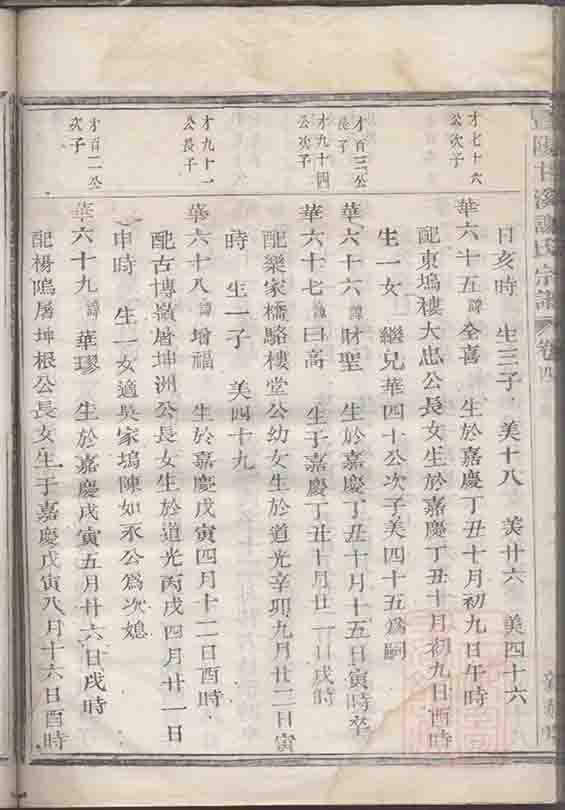 十溪謝氏宗譜 卷四
日亥時 生三子 美十八 美廿六 美四十六
才七十六公次子
華六十五 諱全喜 生於嘉慶丁丑十月初九日午時
配東塢樓大忠公長女生於嘉慶丁丑十月初九日酉時
生一女 繼兄華四十公次子美四十五為嗣
才百三公長子
華六十六 諱財聖 生於嘉慶丁丑十月十五日寅時卒
才九十四公次子
華六十七 諱曰高 生于嘉慶丁丑十月廿一日戌時
配樂家橋駱樓堂公幼女生於道光辛卯九月廿二日寅
時 生一子 美四十九
才九十一公長子
華六十八 諱增福 生於嘉慶戊寅四月十二日酉時
配古博嶺屠坤洲公長女生於道光丙戌四月廿一日
申時 生一女適吳家塢陳如禾公為次媳
才百二公次子
華六十九 諱華璆 生於嘉慶戊寅五月廿六日戌時
配楊隖屠坤根公長女生于嘉慶戊寅八月十六日酉時